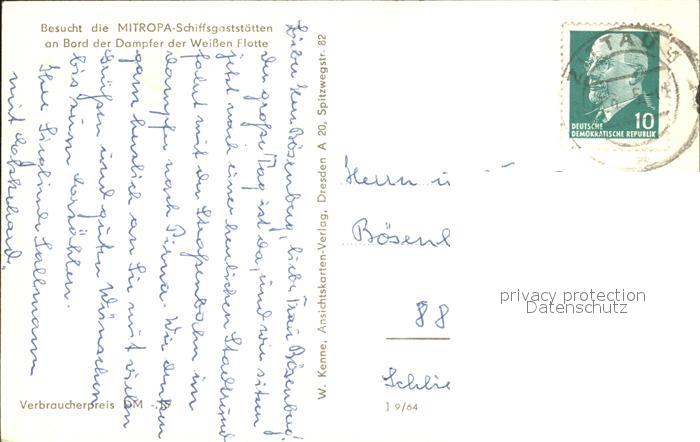 Besucht die MITROPA-Schiffsgaststätten
an Bord der Dampfer der Weißen Flotte
Lieber Herr Bösenberg, liebe Frau Bösenberg!
Der große Tag ist da, und wir sitzen
jetzt nach einer herrlichen Stadtrund
fahrt mit der Straßenbahn im
Dampfer nach Pirna. Wir denken
ganz herzlich an Sie mit vielen
Grüßen und guten Wünschen
bis zum
Ihre Sallmann
mit
Verbraucherpreis DM -,
W. Kenne, Ansichtskarten-Verlag, Dresden A 20, Spitzwegstr. 82
TAU
10
DEUTSCHE
DEMOKRATISCHE REPUBLIK
Herrn u
Bösenb
88
Schlie
J 9/64
privacy protection
Datenschutz